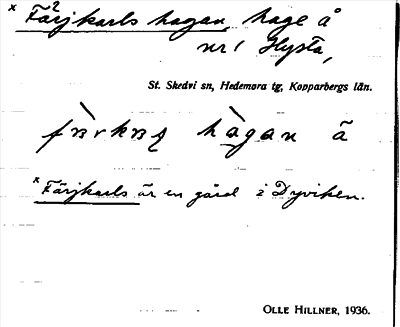 x Färjkarls hagan, hage å
nr 1 Hysta,
St. Skedvi sn, Hedemora tg, Kopparbergs län.
hàgan å
x Färjkarls är en gård i Dyviken.
OLLE HILLNER, 1936.